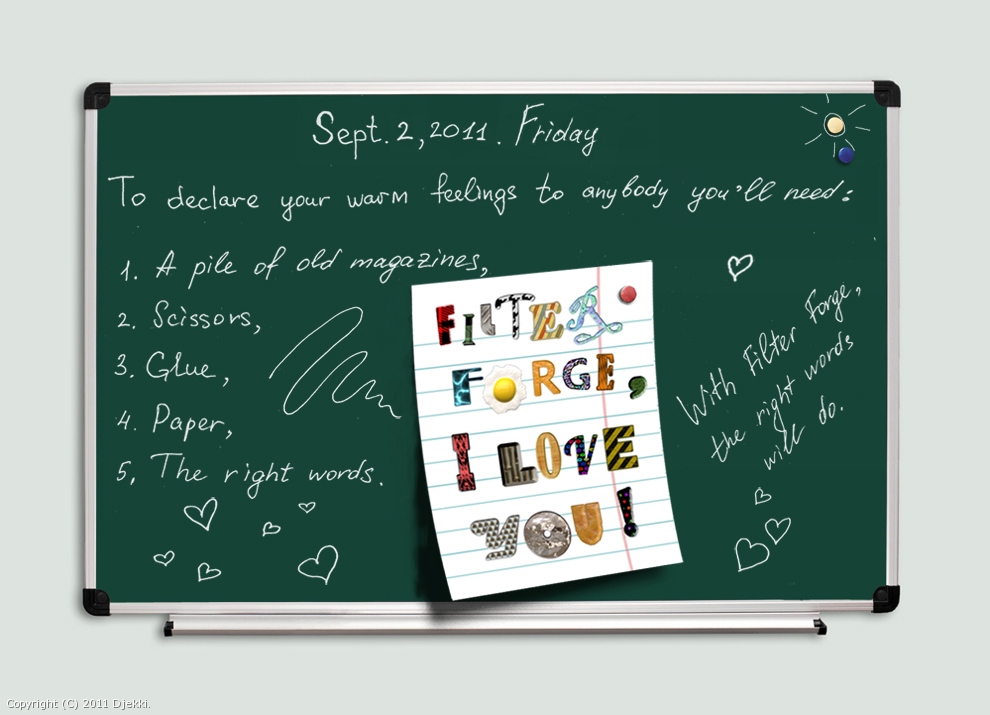 Sept. 2, 2011. Friday
To declare your warm feelings to anybody you'll need:
1. A pile of old magazines,
2. Scissors,
3. Glue,
4. Paper,
5, The right words.
FILTER
FORGE,
I LOVE
YOU!
With Filter Forge,
the right words
will do.
Copyright (C) 2011 Djekki.